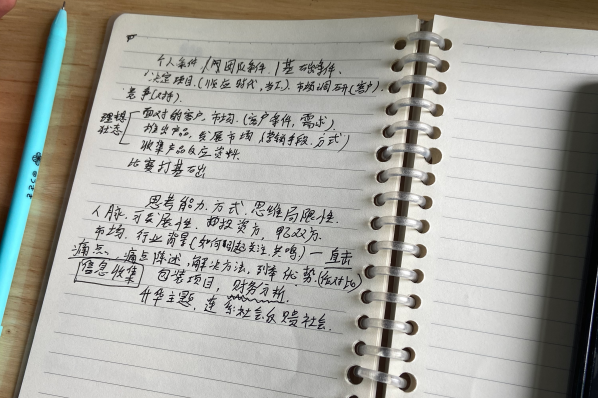 个人条件/团队条件/基础条件.
决定项目.(顺应时代,当下).市场调研(客户).
竞争(对手).
理想状态
面对的客户.市场.(客户条件,需求)
推出产品,发展市场(营销手段,方式)
收集产品反应资料.
比赛打基础
思考能力.方式.思维局限性.
人脉.可发展性.投资方.甲乙双方.
市场.行业背景(如何引起关注.共鸣)—直击
痛点.痛点陈述,解决方法,列举优势.(对比)
信息收集 包装项目,财务分析.
升华主题,连系社会反馈社会.